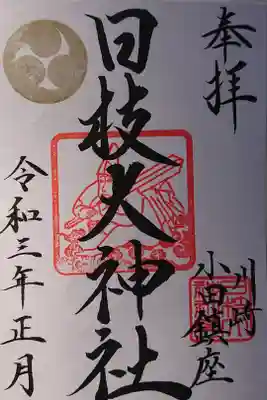 奉拝
川崎
小田鎮座
日枝大神社
令和三年正月